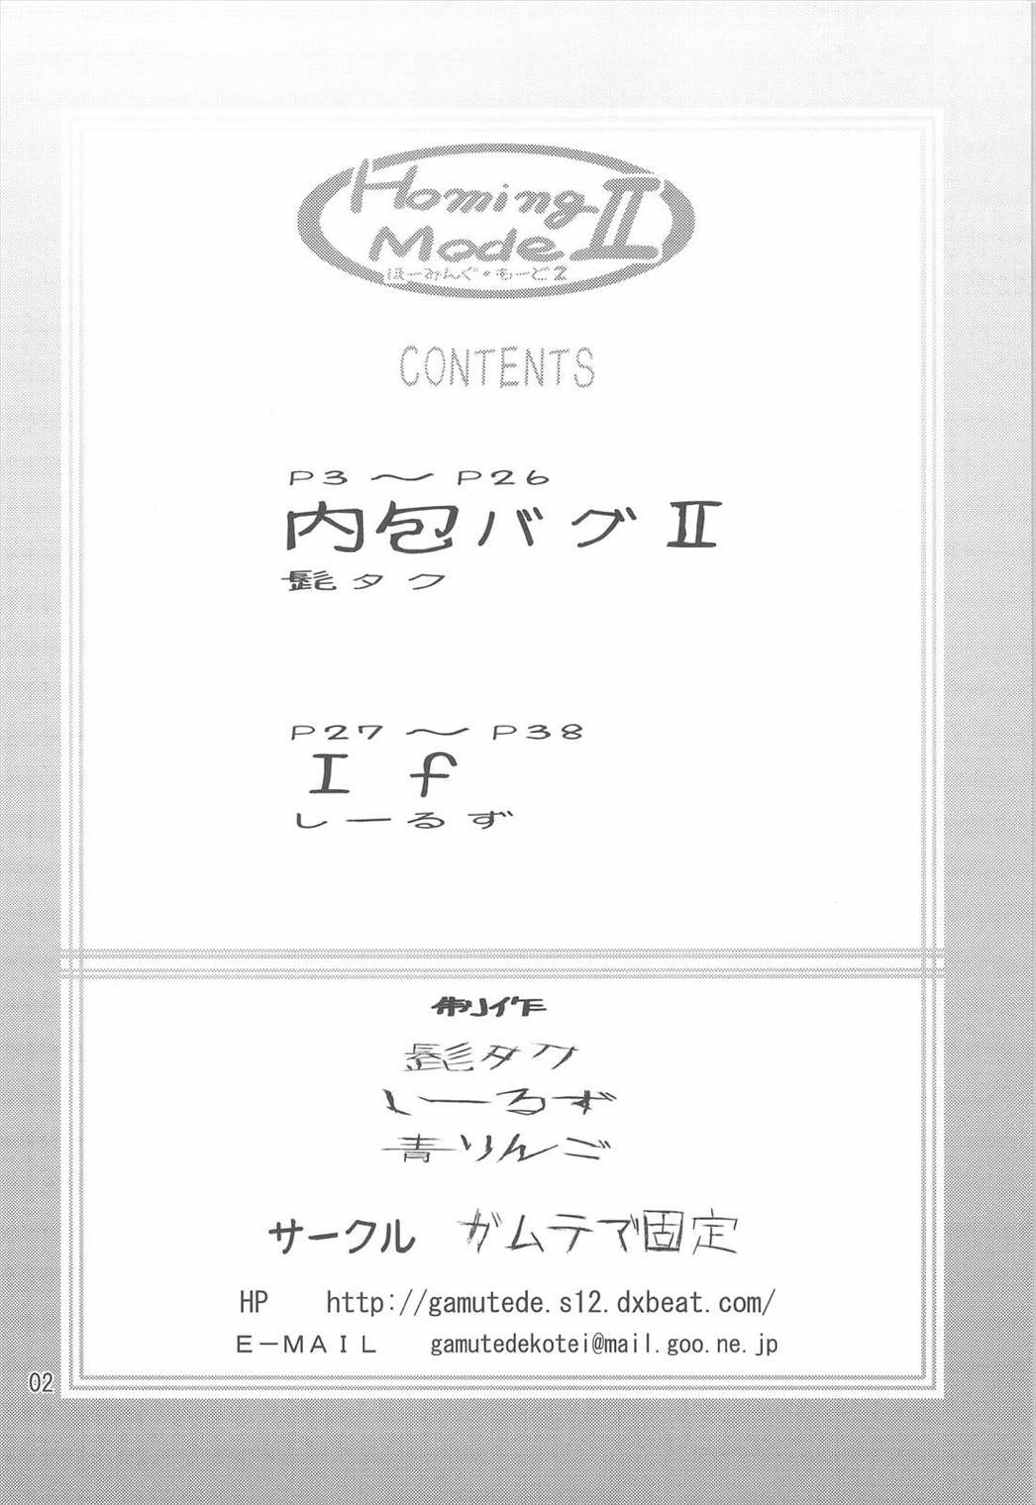 Homing
Mode II
ほーみんぐ・もーど2
CONTENTS
P3～P26
内包バグⅡ
髭タク
P27～P38
If
しーるず
制作
髭タク
しーるず
青りんご
サークル ガムテデ固定
HP http://gamutede.s12.dxbeat.com/
E－MAIL gamutedekotei@mail.goo.ne.jp
02